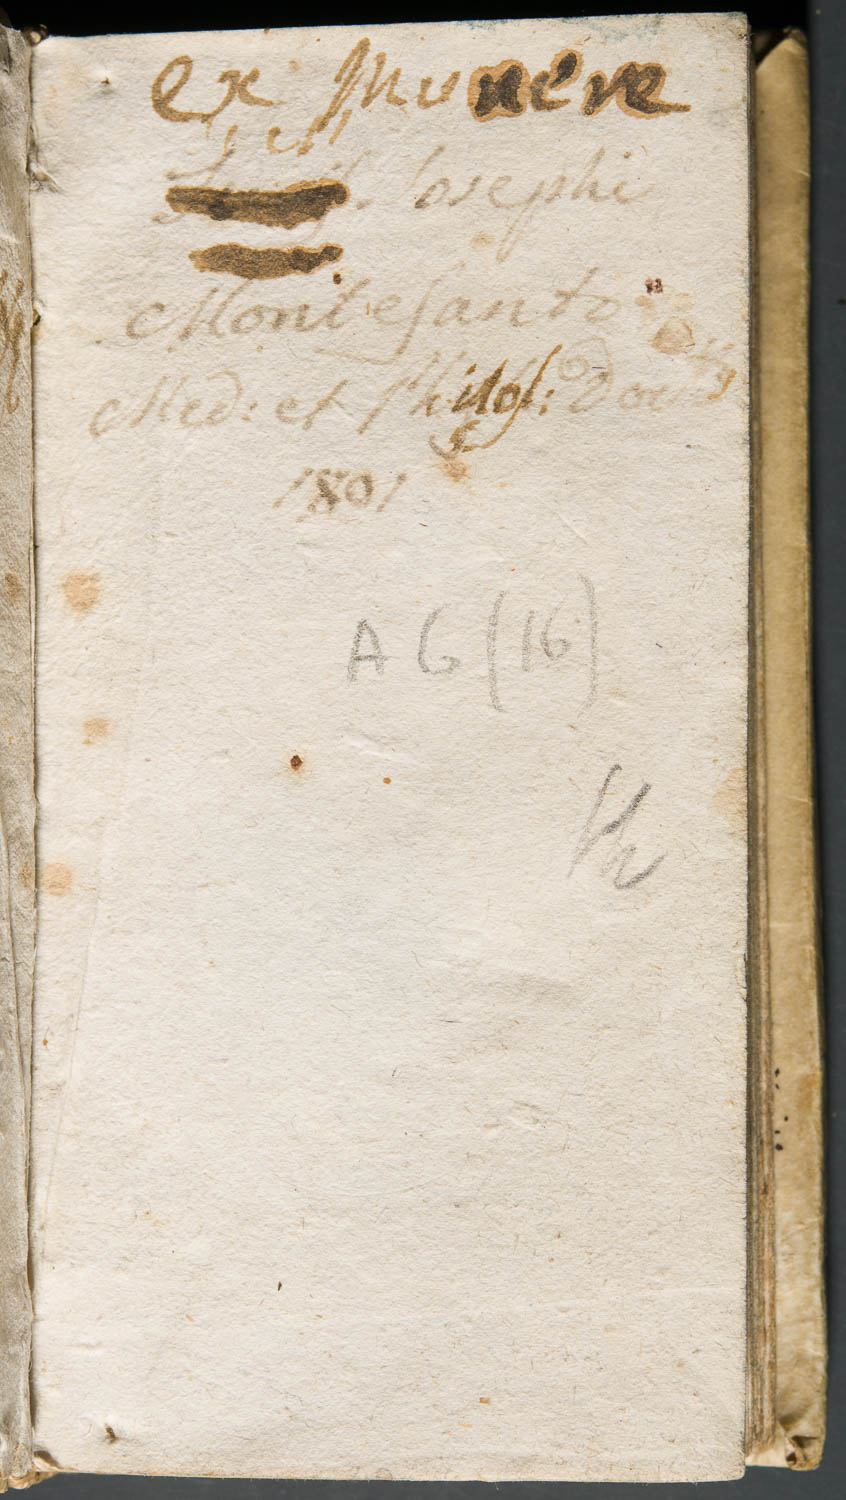 ex Munere
Josephi
Montesanto
Med: et Philos: Doct
1801
A G (16)